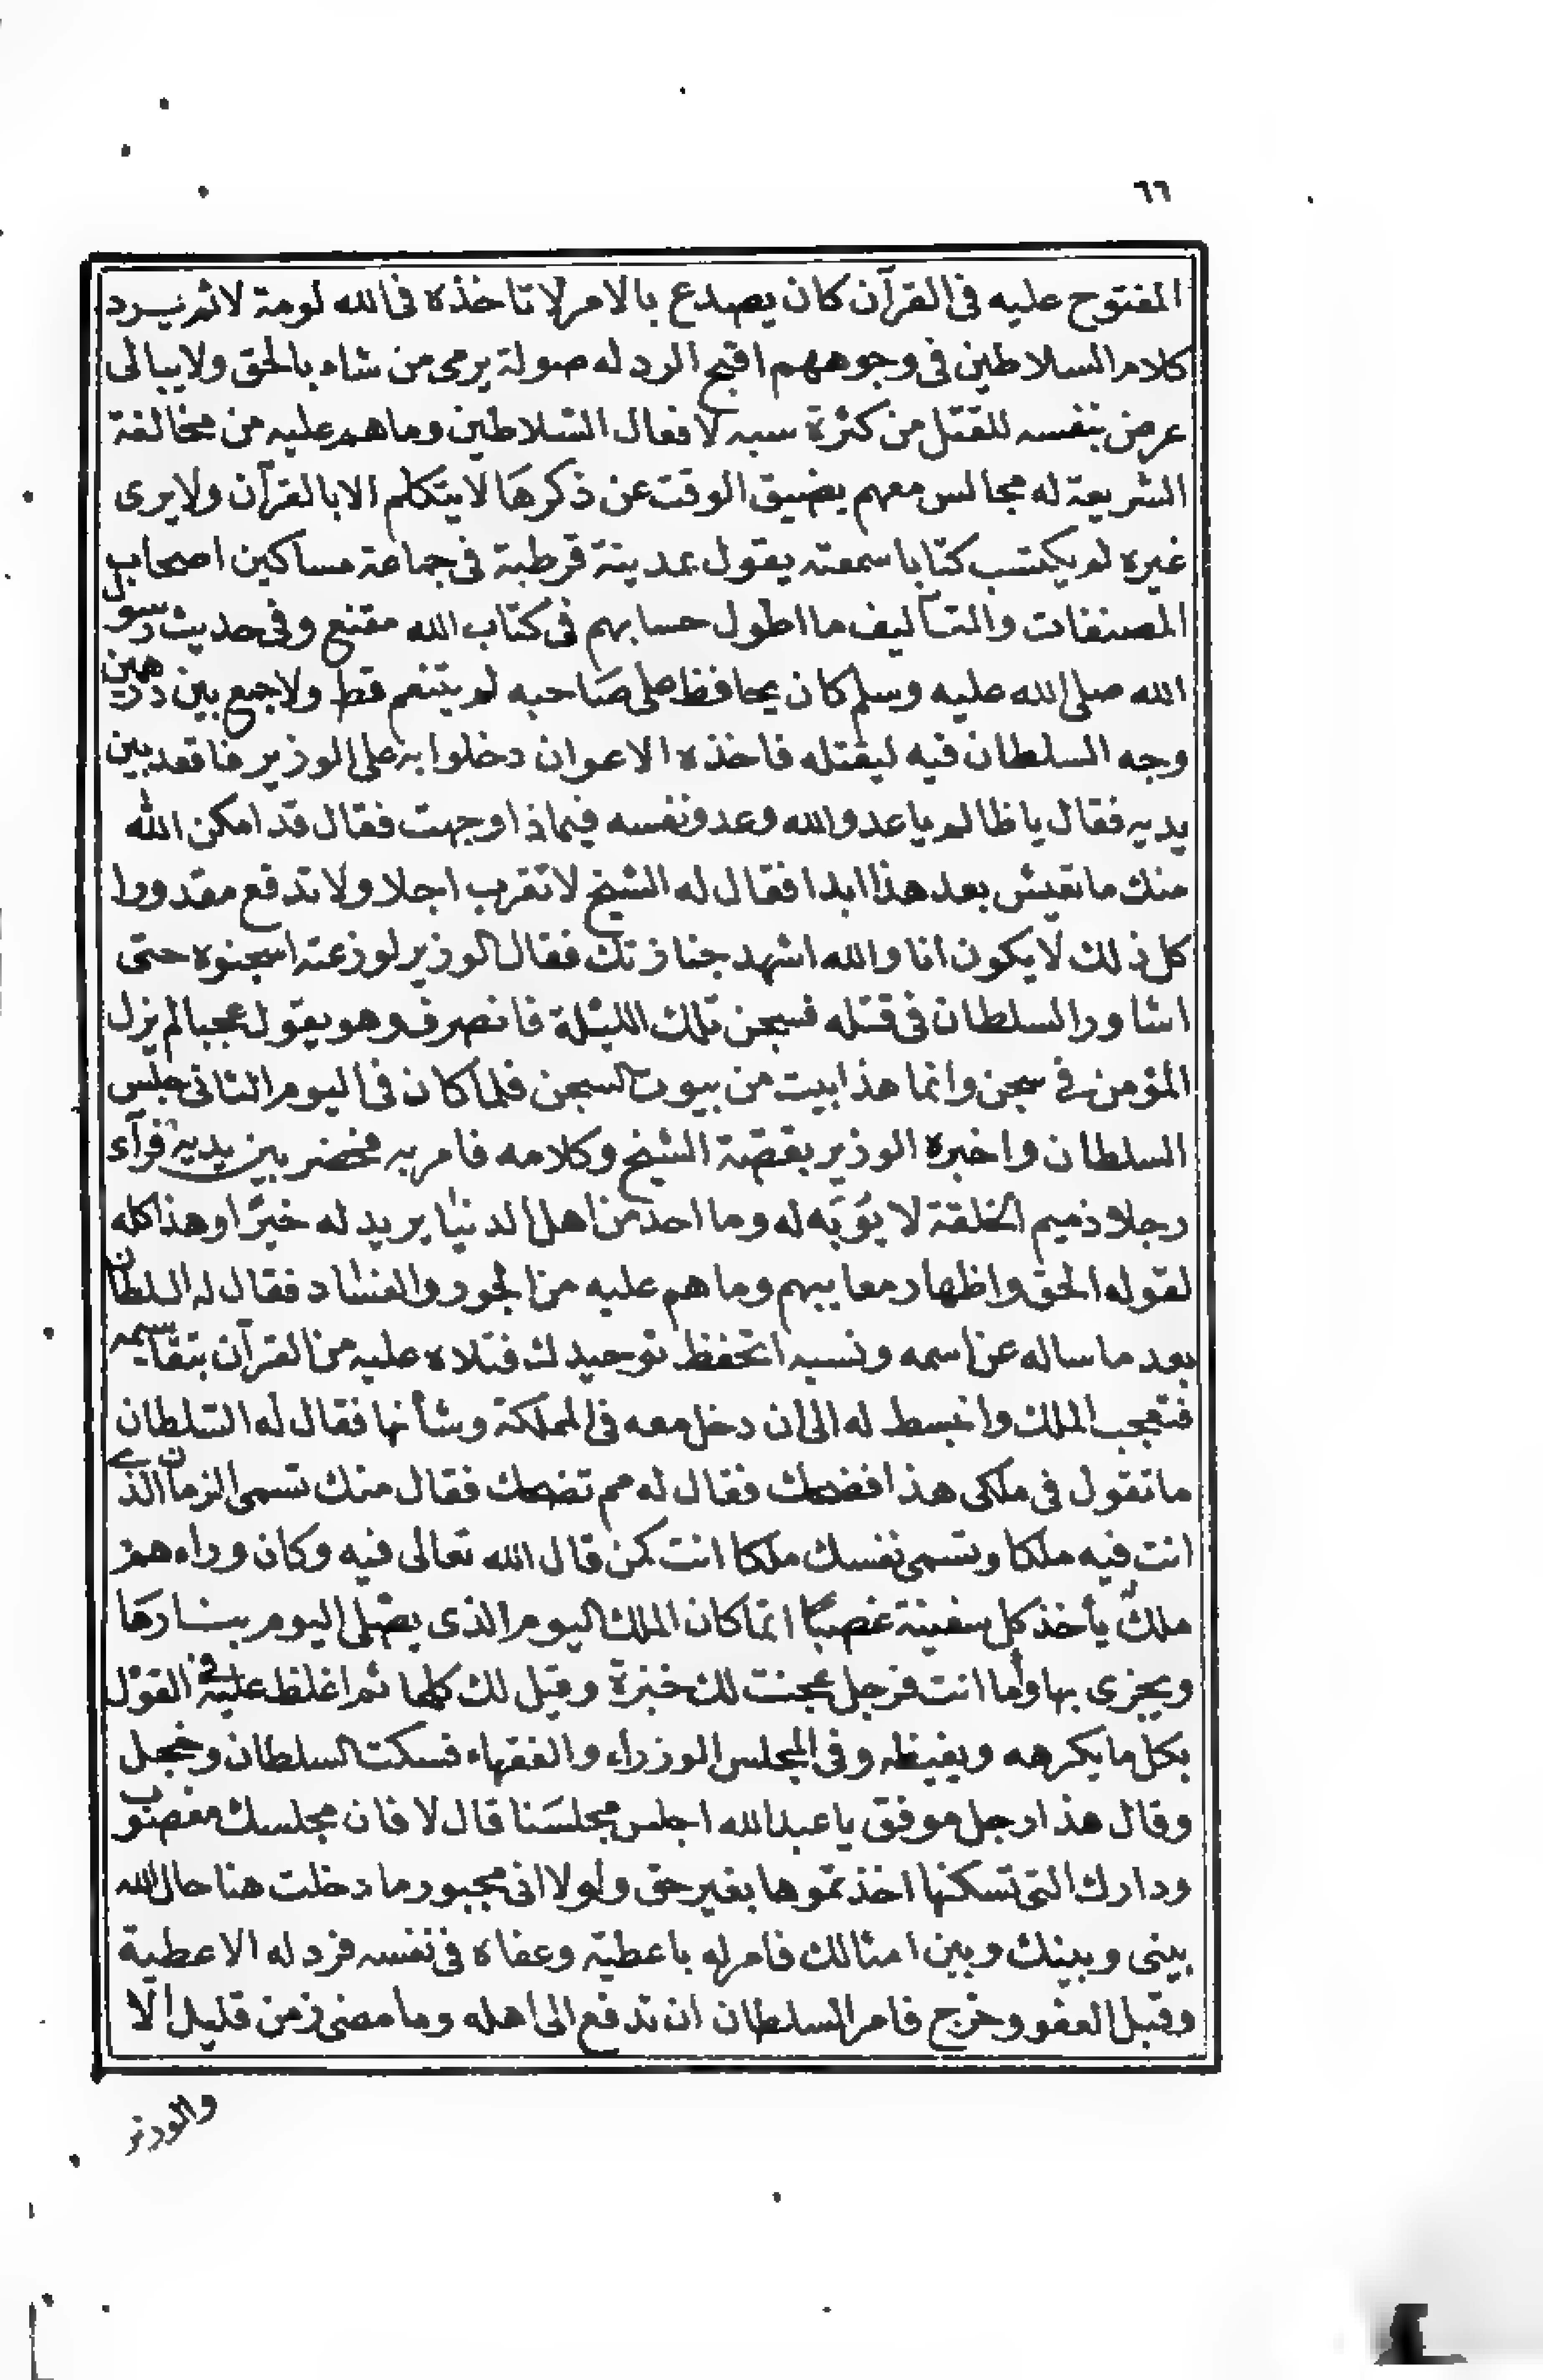 ٦٦
المفتوح عليه فى القرآن كان يصدع بالامر لا تاخذه فى الله لومة لائم يرد
كلام السلاطين فى وجوههم اقبح الرد له صولة يرمى من شاء بالحق ولا يبالى
عرض بنفسه للقتل من كثرة سبه لافعال السلاطين وما هم عليه من مخالفة
الشريعة له مجالس معهم يضيق الوقت عن ذكرها لا يتكلم الا بالقرآن ولا يرى
غيره لم يكتسب كتابا سمعته يقول بمدينة قرطبة فى جماعة مساكين اصحاب
المصنفات والتآليف ما اطول حسابهم فى كتاب الله مقنع وفى حديث رسول
الله صلى الله عليه وسلم كان يحافظ على صاحبه لم يتنعم قط ولا جمع بين درهمين
وجه السلطان فيه ليقتله فاخذه الاعوان دخلوا به على الوزير فاقعد بين
يديه فقال يا ظالم يا عدو الله وعدو نفسه فيماذا وجهت فقال قد امكن الله
منك ما تعيش بعد هذا ابدا فقال له الشيخ لا تقرب اجلا ولا تدفع مقدورا
كل ذلك لا يكون انا والله اشهد جنازتك فقال الوزير لوزعته اسجنوه حتى
اشاور السلطان فى قتله فسجن تلك الليلة فانصرف وهو يقول عجبا لم يزل
المؤمن فى سجن وانما هذا بيت من بيوت السجن فلما كان فى اليوم الثانى جلس
السلطان واخبره الوزير بقصة الشيخ وكلامه فامر به فحضر بين يديه فرآى
رجلا ذميم الخلقة لا يؤبه له وما احد من اهل الدنيا يريد له خيرا وهذا كله
لقوله الحق واظهار معايبهم وما هم عليه من الجور والفساد فقال له السلطان
بعد ما ساله عن اسمه ونسبه اتحفظ توحيدك فتلاه عليه من القرآن بتقاسيمه
فتعجب الملك وانبسط له الى ان دخل معه فى المملكة وشأنها فقال له السلطان
ما تقول فى ملكى هذا فضحك فقال له مم تضحك فقال منك تسمى الزمان الذى
انت فيه ملكا وتسمى نفسك ملكا انت كمن قال الله تعالى فيه وكان وراءهم
ملك يأخذ كل سفينة غصبا انما كان الملك اليوم الذى يصلى اليوم بنارها
ويجزى بها وأما انت فرجل عجنت لك خبزة وقيل لك كلها ثم اغلظ عليه فى القول
بكل ما يكرهه ويغيظه وفى المجلس الوزراء والفقهاء فسكت السلطان وخجل
وقال هذا رجل موفق يا عبد الله اجلس مجلسنا قال لا فان مجلسك مغصوب
ودارك التى تسكنها اخذتموها بغير حق ولولا انى مجبور ما دخلت هنا حال الله
بينى وبينك وبين امثالك فامر له باعطية وعفاه فى نفسه فرد له الاعطية
وقبل العفو وخرج فامر السلطان ان تدفع الى اهله وما مضى زمن قليل الا
والوزير